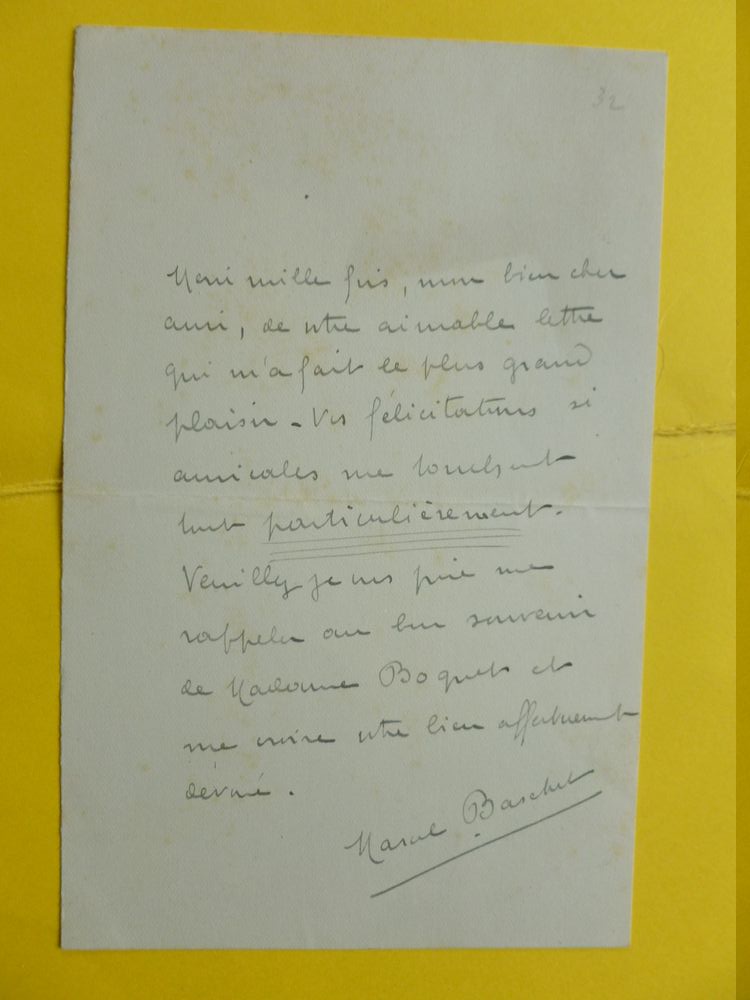 32
Merci mille fois, mon bien cher
ami, de votre aimable lettre
qui m'a fait le plus grand
plaisir - Vos félicitations si
amicales me touchent
tout particulièrement.
Veuillez je vous prie me
rappeler au bon souvenir
de Madame Boquet et
me croire votre bien affectueusement
dévoué.
Marcel Baschet